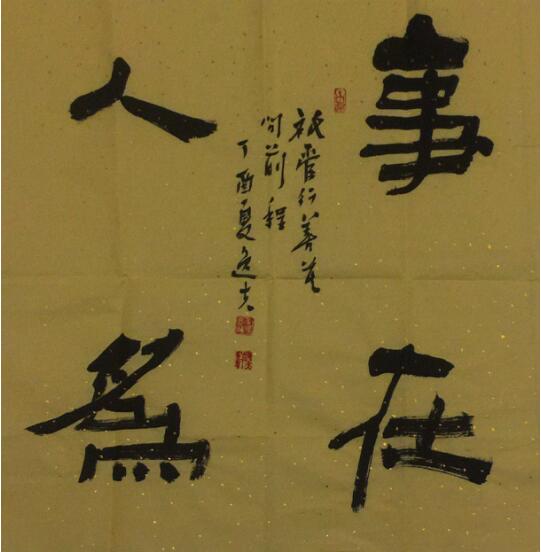 事在
人爲
祇管行善莫
问前程
丁酉夏